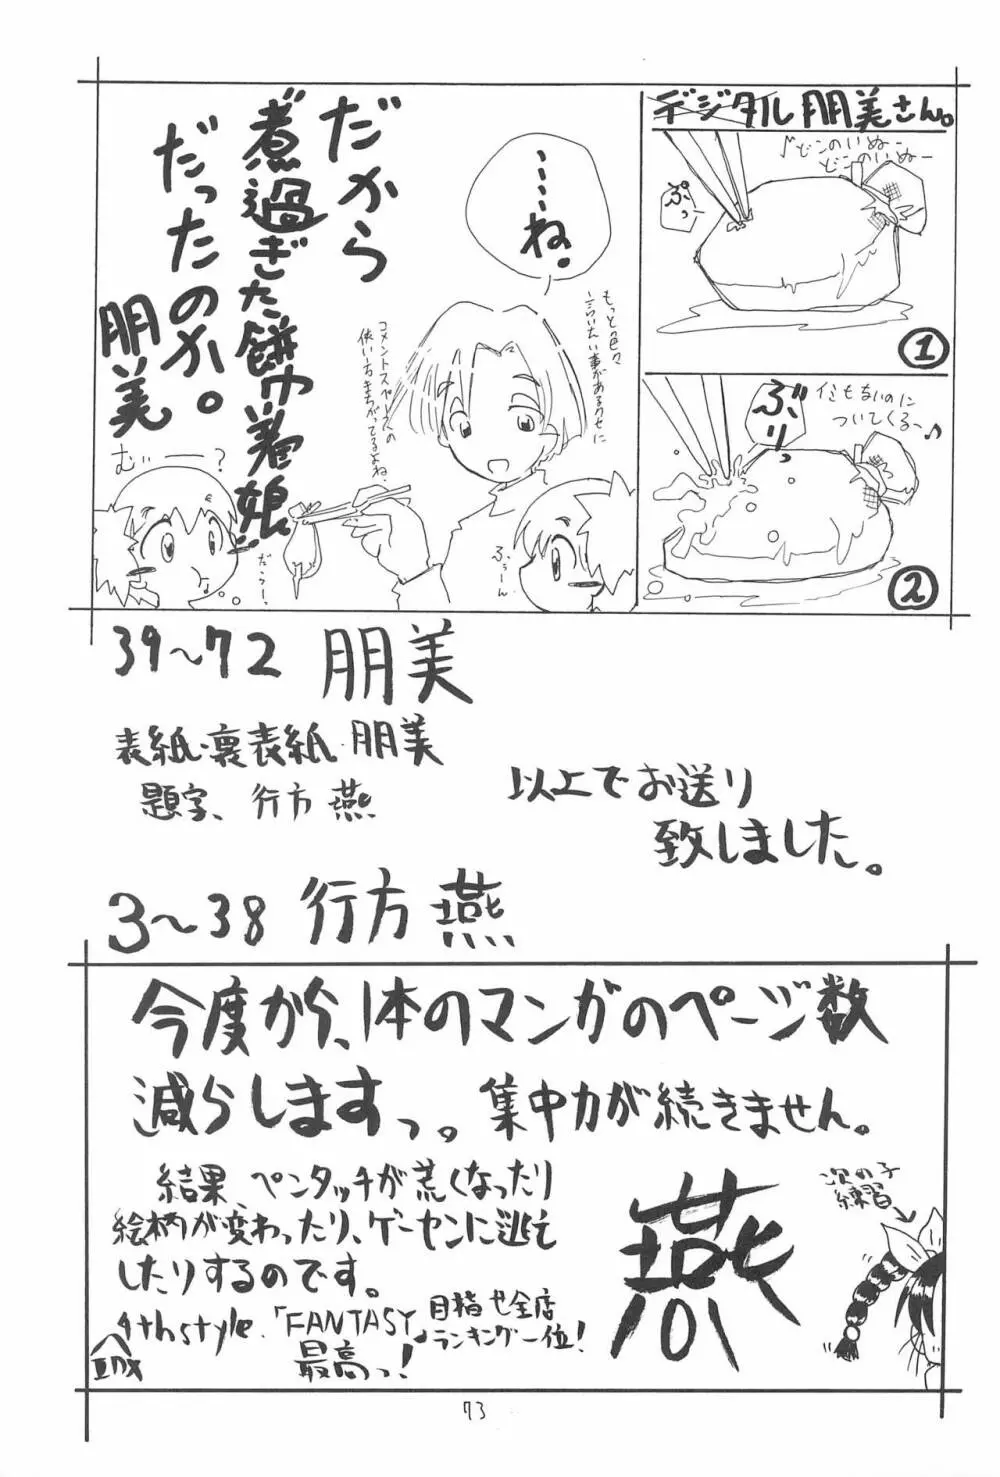 デジタル朋美さん。
♪どこのいぬー
どこのいぬー
ぷっ
①
ぶりっ
ついてくるー♪
②
……ね。
もっとの色々
言いたい事があるくせに
コメントスペースの
使い方まちがってるよね。
だから
煮過ぎた餅巾着娘
だったのか。
朋美
むぃー?
ぷぅーん
39〜72 朋美
表紙・裏表紙 朋美
題字、行方 燕
以上でお送り
致しました。
3〜38 行方 燕
今度から、1本のマンガのページ数
減らしますっ。集中力が続きません。
結果、ペンタッチが荒くなったり
絵柄が変わったり、ゲーセンに逃走
したりするのです。
4thstyle.「FANTASY」
最高っ!
目指せ全店
ランキング一位!
IIDX
燕
次の子
練習
73